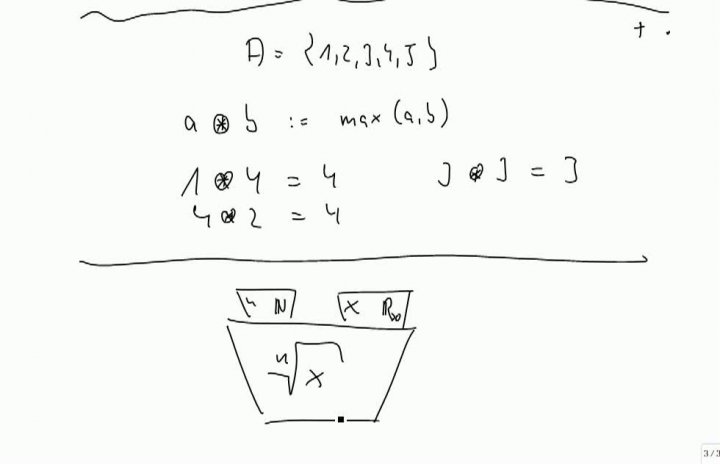 + .
A = {1,2,3,4,5}
a ⊛ b := max (a,b)
1 ⊛ 4 = 4 3 ⊛ 3 = 3
4 ⊛ 2 = 4
n ℕ x ℝ≥0
ⁿ√x
3 / 3